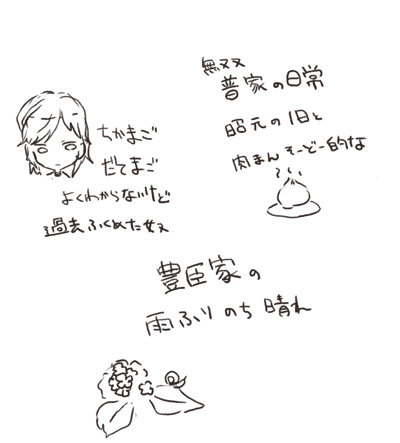 無双
晋家の日常
昭元の1日と
肉まんそーどー的な
ちかまご
だてまご
よくわからないけど
過去ふくめた奴
豊臣家の
雨ふりのち晴れ